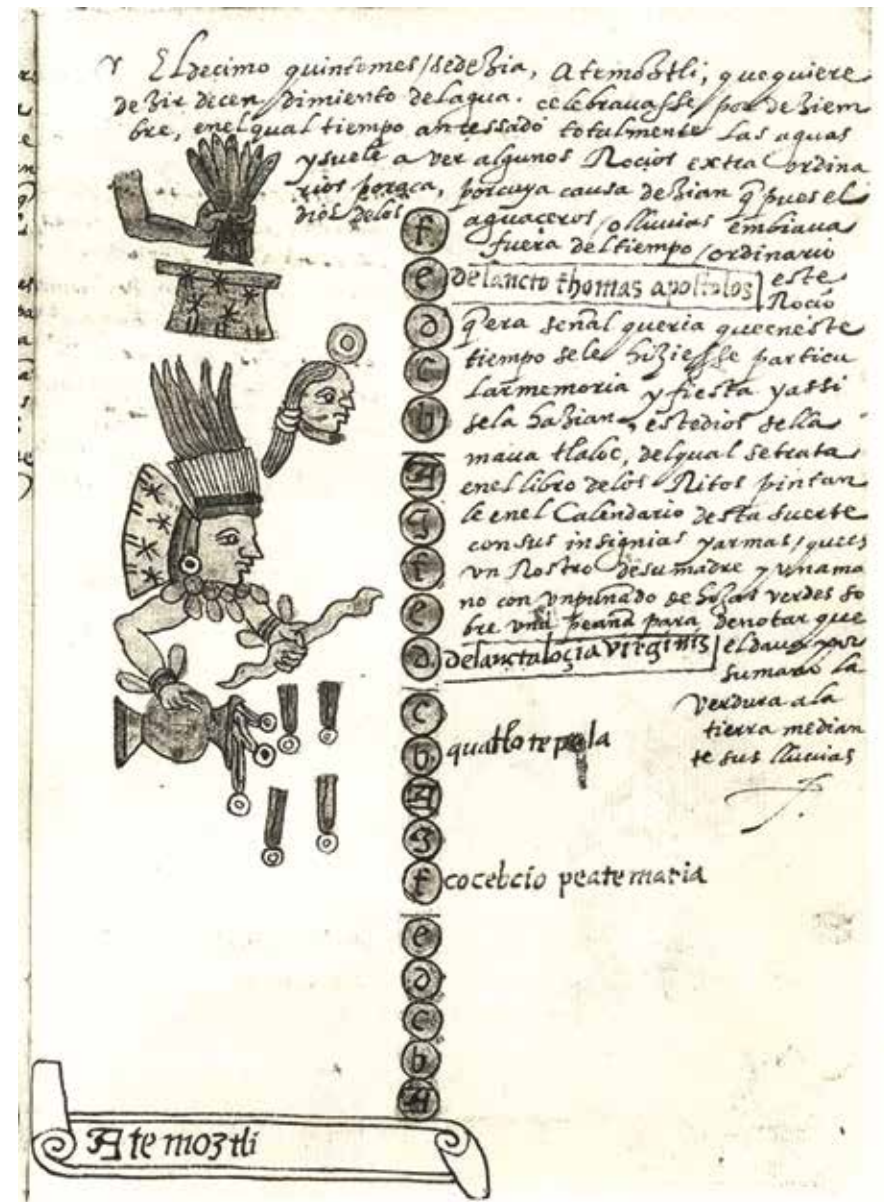 El decimo quinto mes / se dezia, Atemoztli, que quiere
dezir decen dimiento del agua. celebravasse por deziem
bre, enel qual tiempo an cessado totalmente las aguas
y suele a ver algunos Rocios extra ordina
rios por aca, por cuya causa dezian q̃ pues el
dios delos
aguaceros / o lluvias embiava
fuera del tiempo / ordinario
este
Rocio
q̃ era señal queria que en este
tiempo se le hiziesse particu
lar memoria y fiesta y assi
se la hazian, este dios se lla
mava tlaloc, del qual se trata
enel libro delos Ritos pintan
le enel Calendario desta suerte
con sus insignias y armas / que es
un Rostro de su madre y una ma
no con un puñado de hojas verdes so
bre una peaña para denotar que
el dava por
su mano la
verdura a la
tierra median
te sus lluvias
f
e de sancto thomas apostolos
d
c
b
A
g
f
e
d de sancta locia virginis
c
b quatlo te pela
A
g
f cocebcio peate maria
e
d
c
b
A
A te moztli